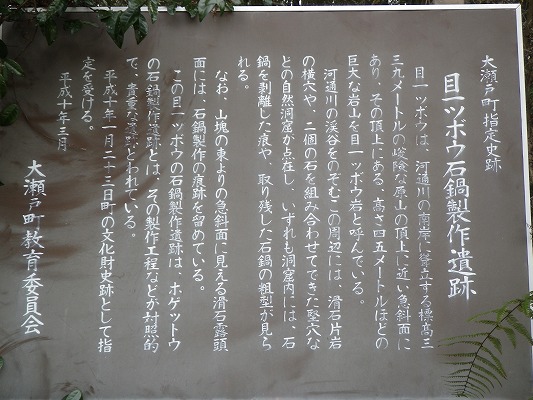 大瀬戸町指定史跡
目一ツボウ石鍋製作遺跡
目一ツボウは、河通川の南岸に聳立する標高三
三九メートルの峻険な原山の頂上に近い急斜面に
あり、その頂上にある、高さ四五メートルほどの
巨大な岩山を目一ツボウ岩と呼んでいる。
河通川の渓谷をのぞむこの周辺には、滑石片岩
の横穴や、二個の石を組み合わせてできた竪穴な
どの自然洞窟が点在し、いずれも洞窟内には、石
鍋を剥離した痕や、取り残した石鍋の粗型が見ら
れる。
なお、山塊の東よりの急斜面に見える滑石露頭
面には、石鍋製作の痕跡を留めている。
この目一ツボウの石鍋製作遺跡は、ホゲットウ
の石鍋製作遺跡とは、その製作工程などが対照的
で、貴重な遺跡といわれている。
平成十年一月二十三日町の文化財史跡として指
定を受ける。
平成十年三月
大瀬戸町教育委員会